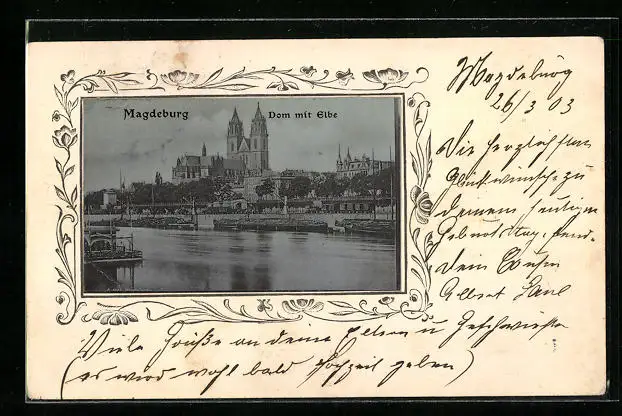 Magdeburg
Dom mit Elbe
Magdeburg
26/3 03
Die herzlichsten
Glückwünsche zu
deinem heutigen
Geburtstag, send.
dein Cousin
Albert
Viele Grüße an deine Eltern u Geschwister
(es wird wohl bald Hochzeit geben)